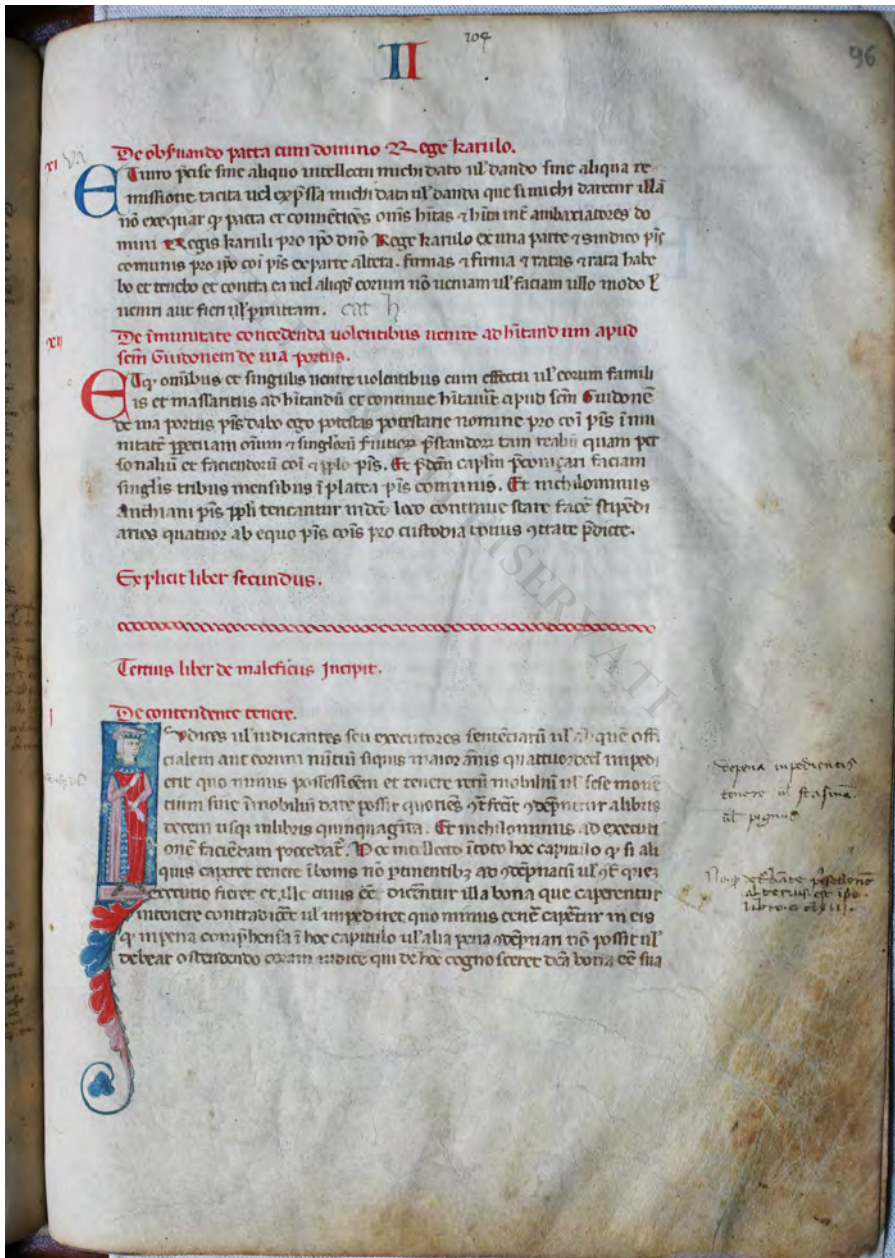 209
96
II
XI
De obseruando pacta cum domino Rege karulo.
ET iuro p̄cise sine aliquo intellectu michi dato ul' dando sine aliqua re
missione tacita uel exp̄ssa michi data ul' danda que si michi daretur illā
nō exequar q̄ pacta et conuētiōēs om̄s h̄itas ⁊ h̄itū int̄ ambaxiatores do
mini Regis karuli pro ip̄o dn̄o Rege karulo ex una parte ⁊ sindico pis̄
comunis pro ip̄o coī pis̄ ex parte altera. firmas ⁊ firma ⁊ ratas ⁊ rata habe
bo et tenebo et contra ea uel aliqd̄ eorum nō ueniam ul' faciam ullo modo
ueniri aut fieri ul' p̄mittam.
XII
De īmunitate concedenda uolentibus uenire ad h̄itandum apud
sc̄m Guidonem de uia portus.
ET q̄ om̄ibus et singulis uenire uolentibus cum effectu ul' eorum famili
is et massaritiis ad h̄itandū et continue h̄itauīt apud sc̄m Guidonē
de uia portus pis̄ dabo ego potestas potestarie nomine pro coī pis̄ īmu
nitatē p̄petuam oīum ⁊ singlorū seruitiorū p̄standorū tam realiū quam per
sonaliū et faciendorū coī ⁊ pplo pis̄. Et p̄dc̄m caplm̄ p̄coniçari faciam
singlis tribus mensibus ī platea pis̄ comunis. Et nichilominus
Anthiani pis̄ ppli teneantur in dc̄o loco continue stare facē stipēdi
arios quatuor ab equo pis̄ cois̄ pro custodia totius ⁊trate p̄dicte.
Explicit liber secundus.
Tertius liber de maleficiis Incipit.
I
De contendente tenere.
Iudices ul' iudicantes seu executores sentētiarū ul' aliquē offi
cialem aut eorum nūtiū siquis maior ānis quattuordecī impedi
erit quo minus possessiōem et tenere rerū mobiliū ul' sese mouē
tium siue īmobiliū dare possit quotiēs ⁊t̄fec̄it ⁊dēp̄netur a libris
decem usq̄ in libris quinquagīta. Et nichilominus ad executi
onē faciēdam procedat̄. Hoc intellecto ī toto hoc capitulo q̄ si ali
quis caperet tenere ī bonis nō p̄tinentibꝫ ad ⁊dēp̄natū ul'
executio fieret et ille cuius ēē dicerentur illa bona que caperentur
in tenere contradicēt ul' impediret quo minus tenē capētur in eis
q̄ in pena comp̄hensa ī hoc capitulo ul' alia pena ⁊dēp̄nari nō possit ul'
debeat ostendendo coram iudice qui de hoc cognosceret dc̄a bona ēē sua
de pena inpedientis
tenere ul' stasinā
ul' pignus